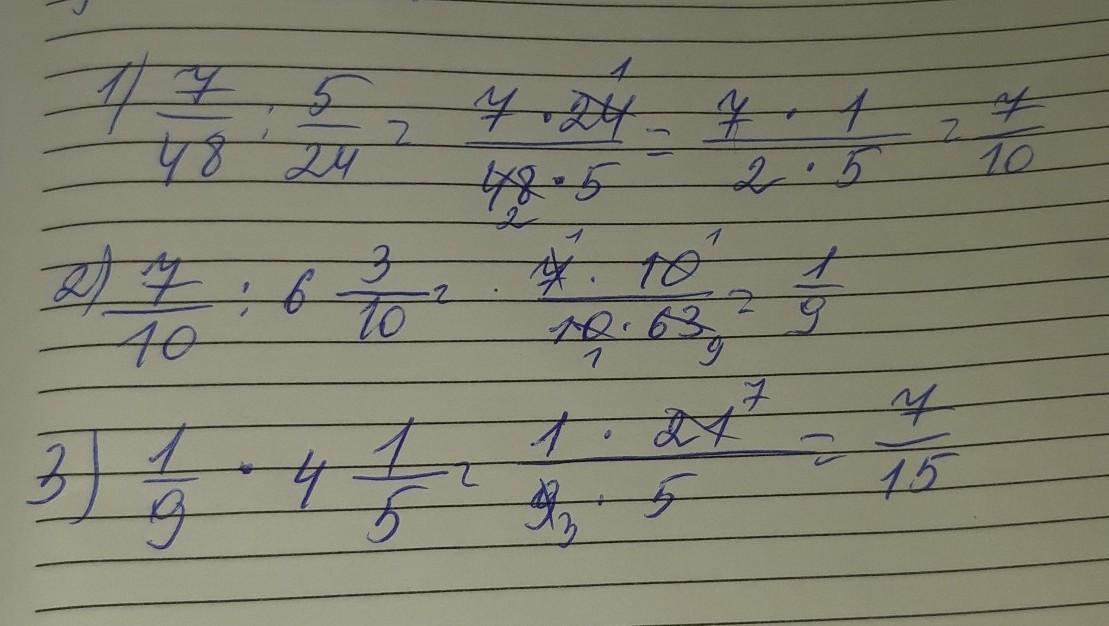 1) 7/48 : 5/24 = 7 · 24 1 / 48 2 · 5 = 7 · 1 / 2 · 5 = 7/10
2) 7/10 : 6 3/10 = · 7 1 · 10 1 / 10 1 · 63 9 = 1/9
3) 1/9 · 4 1/5 = 1 · 21 7 / 9 3 · 5 = 7/15